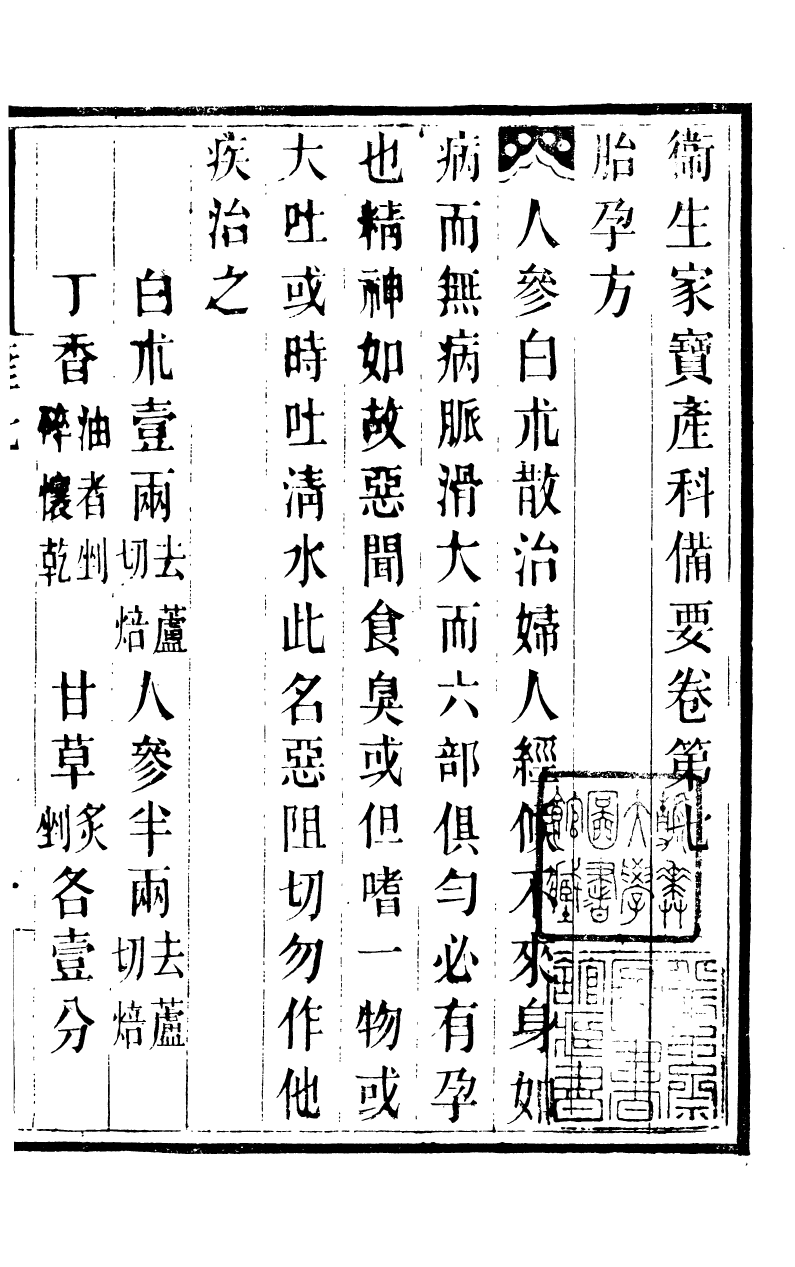 衛生家寶產科備要卷第七
胎孕方
人參白朮散治婦人經候不來身如
病而無病脈滑大而六部俱勻必有孕
也精神如故惡聞食臭或但嗜一物或
大吐或時吐清水此名惡阻切勿作他
疾治之
白朮壹兩去蘆切焙人參半兩去蘆切焙
丁香油者剉碎懷乾甘草炙剉各壹分
大學圖書館藏